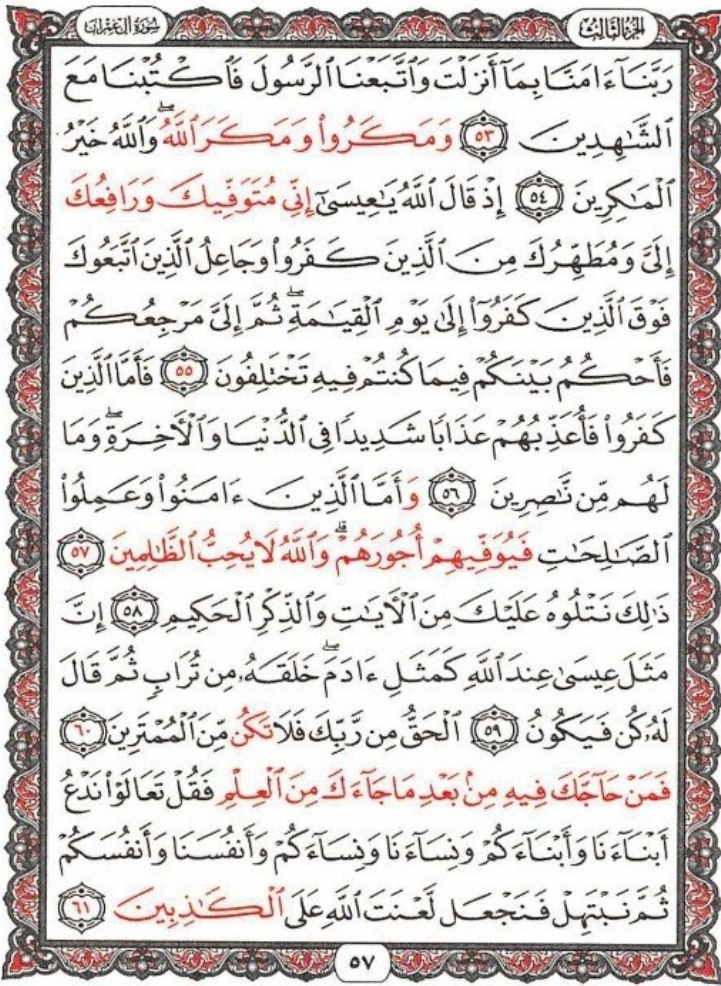 الجزء الثالث
سُورَةُ آلِ عِمْرَان
رَبَّنَآ ءَامَنَّا بِمَآ أَنزَلْتَ وَٱتَّبَعْنَا ٱلرَّسُولَ فَٱكْتُبْنَا مَعَ
ٱلشَّٰهِدِينَ ٥٣ وَمَكَرُوا۟ وَمَكَرَ ٱللَّهُ ۖ وَٱللَّهُ خَيْرُ
ٱلْمَٰكِرِينَ ٥٤ إِذْ قَالَ ٱللَّهُ يَٰعِيسَىٰٓ إِنِّى مُتَوَفِّيكَ وَرَافِعُكَ
إِلَىَّ وَمُطَهِّرُكَ مِنَ ٱلَّذِينَ كَفَرُوا۟ وَجَاعِلُ ٱلَّذِينَ ٱتَّبَعُوكَ
فَوْقَ ٱلَّذِينَ كَفَرُوٓا۟ إِلَىٰ يَوْمِ ٱلْقِيَٰمَةِ ۖ ثُمَّ إِلَىَّ مَرْجِعُكُمْ
فَأَحْكُمُ بَيْنَكُمْ فِيمَا كُنتُمْ فِيهِ تَخْتَلِفُونَ ٥٥ فَأَمَّا ٱلَّذِينَ
كَفَرُوا۟ فَأُعَذِّبُهُمْ عَذَابًا شَدِيدًا فِى ٱلدُّنْيَا وَٱلْءَاخِرَةِ ۖ وَمَا
لَهُم مِّن نَّٰصِرِينَ ٥٦ وَأَمَّا ٱلَّذِينَ ءَامَنُوا۟ وَعَمِلُوا۟
ٱلصَّٰلِحَٰتِ فَيُوَفِّيهِمْ أُجُورَهُمْ ۗ وَٱللَّهُ لَا يُحِبُّ ٱلظَّٰلِمِينَ ٥٧
ذَٰلِكَ نَتْلُوهُ عَلَيْكَ مِنَ ٱلْءَايَٰتِ وَٱلذِّكْرِ ٱلْحَكِيمِ ٥٨ إِنَّ
مَثَلَ عِيسَىٰ عِندَ ٱللَّهِ كَمَثَلِ ءَادَمَ ۖ خَلَقَهُۥ مِن تُرَابٍ ثُمَّ قَالَ
لَهُۥ كُن فَيَكُونُ ٥٩ ٱلْحَقُّ مِن رَّبِّكَ فَلَا تَكُن مِّنَ ٱلْمُمْتَرِينَ ٦٠
فَمَنْ حَآجَّكَ فِيهِ مِنۢ بَعْدِ مَا جَآءَكَ مِنَ ٱلْعِلْمِ فَقُلْ تَعَالَوْا۟ نَدْعُ
أَبْنَآءَنَا وَأَبْنَآءَكُمْ وَنِسَآءَنَا وَنِسَآءَكُمْ وَأَنفُسَنَا وَأَنفُسَكُمْ
ثُمَّ نَبْتَهِلْ فَنَجْعَل لَّعْنَتَ ٱللَّهِ عَلَى ٱلْكَٰذِبِينَ ٦١
٥٧